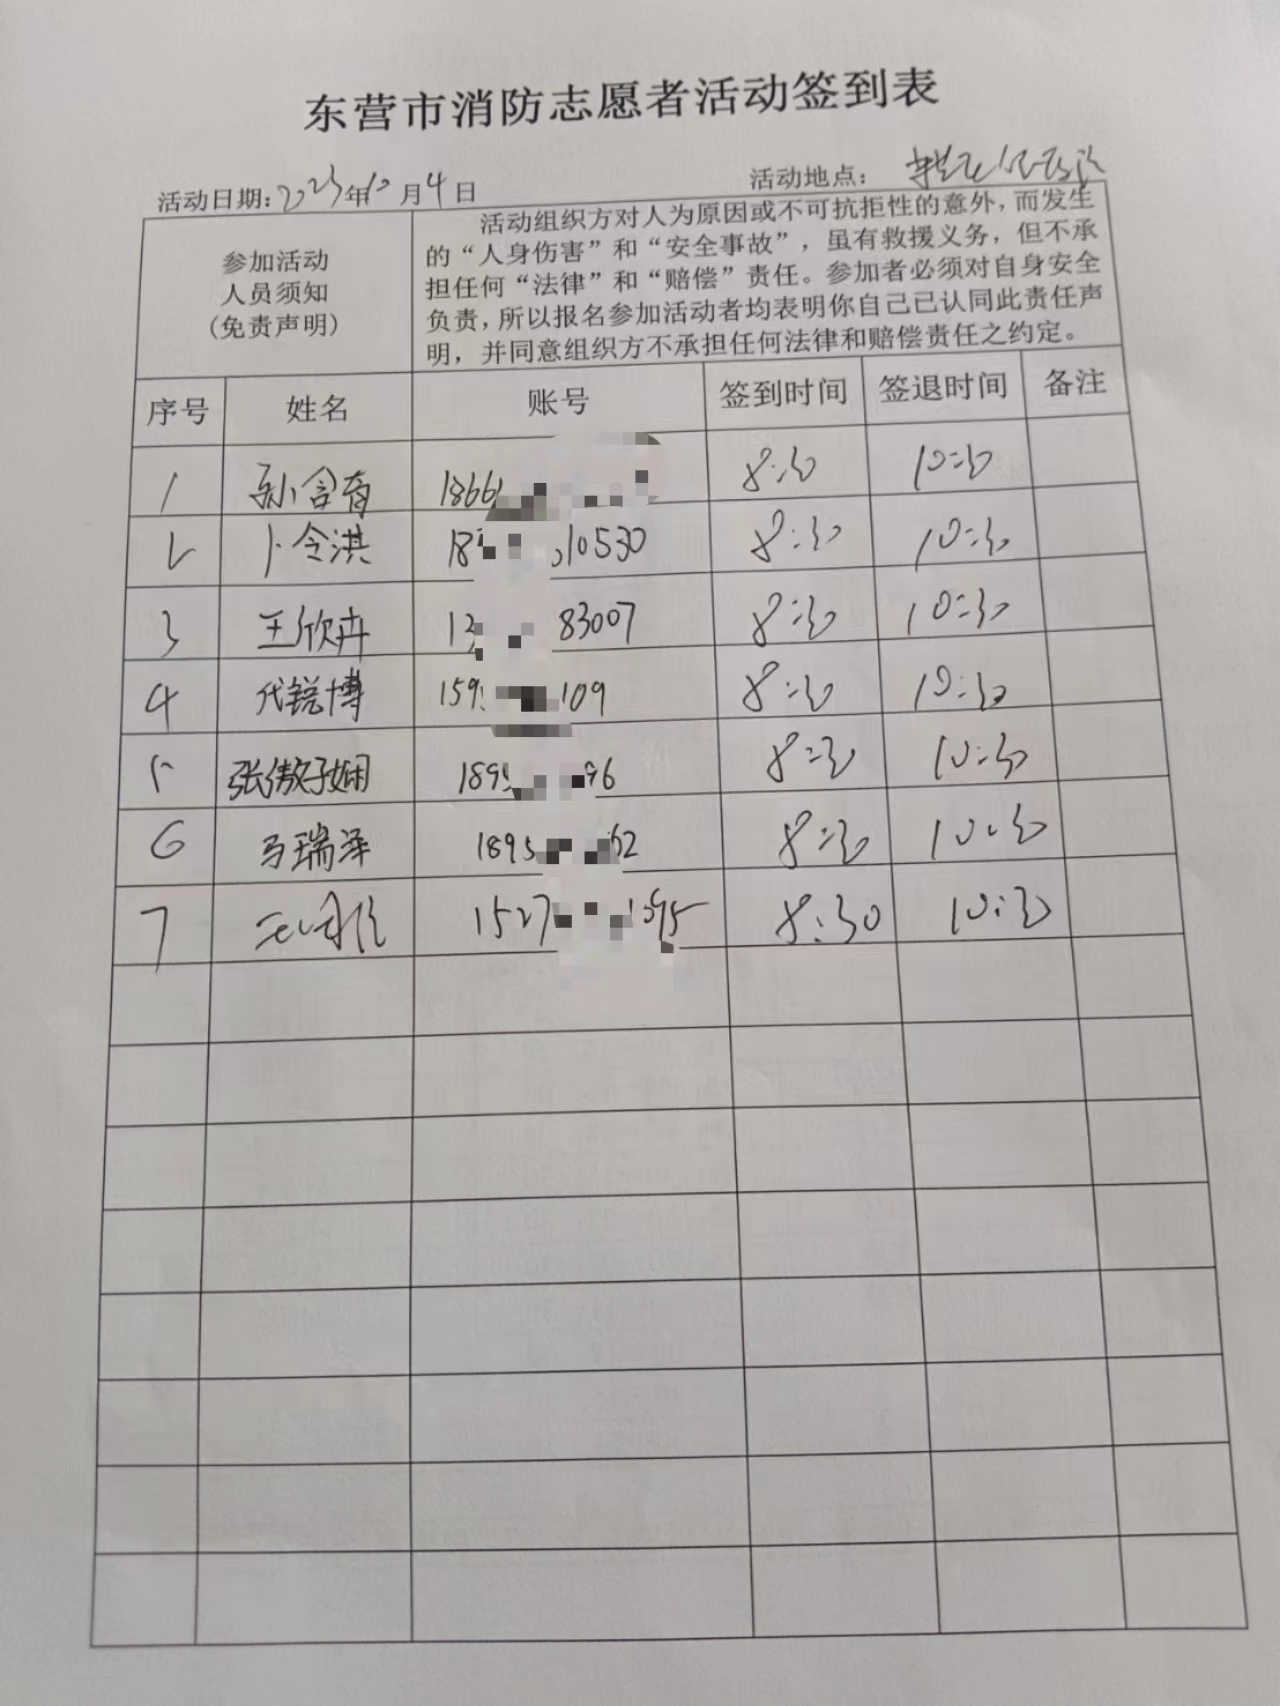 东营市消防志愿者活动签到表
活动日期：2023年10月4日 活动地点：
参加活动
人员须知
（免责声明）
活动组织方对人为原因或不可抗拒性的意外，而发生
的“人身伤害”和“安全事故”，虽有救援义务，但不承
担任何“法律”和“赔偿”责任。参加者必须对自身安全
负责，所以报名参加活动者均表明你自己已认同此责任声
明，并同意组织方不承担任何法律和赔偿责任之约定。
序号 姓名 账号 签到时间 签退时间 备注
1 孙含育 1866 8:30 10:30
2 卜令洪 18 10530 8:30 10:30
3 王欣卉 13 83007 8:30 10:30
4 代锐博 159 109 8:30 10:30
5 张傲子娴 189 96 8:30 10:30
6 马瑞泽 1895 62 8:30 10:30
7 1527 1095 8:30 10:30